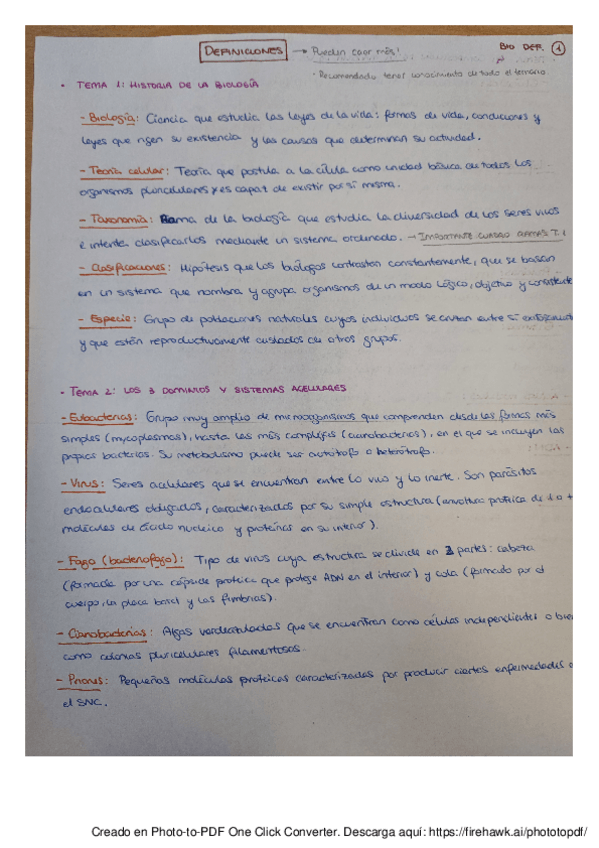 DEFINICIONES → Pueden caer más! BIO DEF. 1
· Recomendado tener conocimiento de todo el temario
· TEMA 1: HISTORIA DE LA BIOLOGÍA
- Biología: Ciencia que estudia las leyes de la vida: formas de vida, condiciones y
leyes que rigen su existencia y las causas que determinan su actividad.
- Teoría celular: Teoría que postula a la célula como unidad básica de todos los
organismos pluricelulares y es capaz de existir por sí misma.
- Taxonomía: Rama de la biología que estudia la diversidad de los seres vivos
e intenta clasificarlos mediante un sistema ordenado. → IMPORTANTE CUADRO T.1
- Clasificaciones: Hipótesis que los biólogos contrastan constantemente, que se basan
en un sistema que nombra y agrupa organismos de un modo lógico, objetivo y consistente
- Especie: Grupo de poblaciones naturales cuyos individuos se cruzan entre sí
y que están reproductivamente aislados de otros grupos.
· TEMA 2: LOS 3 DOMINIOS Y SISTEMAS ACELULARES
- Eubacterias: Grupo muy amplio de microorganismos que comprenden desde las formas más
simples (mycoplasmas), hasta las más complejas (cianobacterias), en el que se incluyen las
propias bacterias. Su metabolismo puede ser autótrofo o heterótrofo.
- Virus: Seres acelulares que se encuentran entre lo vivo y lo inerte. Son parásitos
endocelulares obligados, caracterizados por su simple estructura (envoltura proteica de 1 o +
moléculas de ácido nucleico y proteínas en su interior).
- Fago (bacteriófago): Tipo de virus cuya estructura se divide en 2 partes: cabeza
(formada por una cápside proteica que protege ADN en el interior) y cola (formado por el
cuerpo, la placa basal y las fimbrias).
- Cianobacterias: Algas verdeazuladas que se encuentran como células independientes o bien
como colonias pluricelulares filamentosas.
- Priones: Pequeñas moléculas proteicas caracterizadas por producir ciertas enfermedades
el SNC.
Creado en Photo-to-PDF One Click Converter. Descarga aquí: https://firehawk.ai/phototopdf/